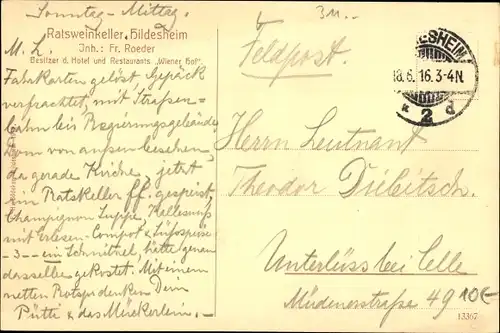 Sonntag-Mittag.
Ratsweinkeller Hildesheim
Inh.: Fr. Roeder
Besitzer d. Hotel und Restaurants „Wiener Hof"
M. L.
Fahrkarten gelöst, Gepäck
verfrachtet, mit Straßen=
bahn bis Regierungsgebäude,
Dom von außen besehen,
da gerade Kirche, jetzt
im Ratskeller ff. gespeist,
Champignon Suppe,
mit Erlesen Compot & Süßspeise
-3- ein Schnitzel, hätte genau
dasselbe gekostet. Mit einem
netten denken Dein
Pütti & das
3M.-
Feldpost.
HILDESHEIM
18.6.16.3-4N.
* 2 d
Herrn Leutnant
Theodor Diebitsch.
Unterlüss bei Celle
Müdenerstraße 49
10€
13367